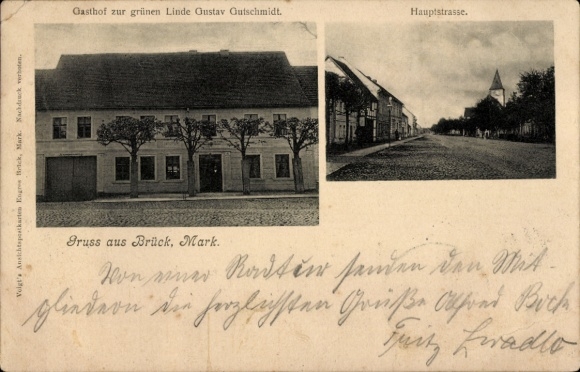 Gasthof zur grünen Linde Gustav Gutschmidt.
Hauptstrasse.
Voigt's Ansichtspostkarten Engros Brück, Mark. Nachdruck verboten.
Gruss aus Brück, Mark.
Von einer Radtur senden den Mit-
gliedern die herzlichsten Grüße Alfred Bock
Fritz